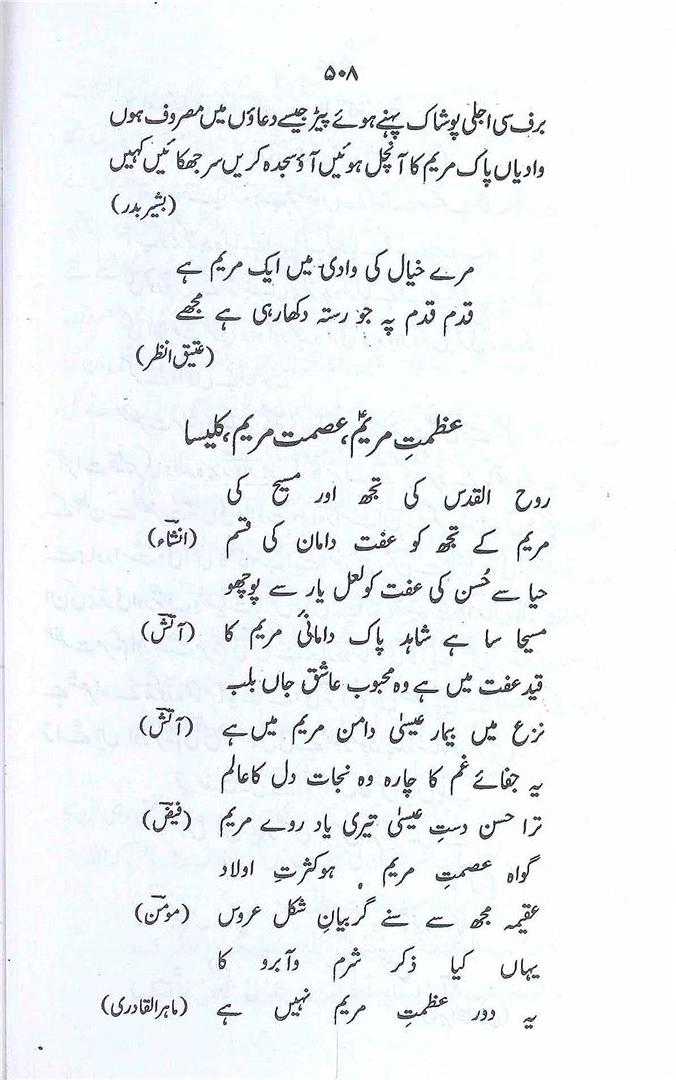 ۵۰۸
برف سی اجلی پوشاک پہنے ہوئے پیڑ جیسے دعاؤں میں مصروف ہوں
وادیاں پاک مریم کا آنچل ہوئیں آؤ سجدہ کریں سر جھکائیں کہیں
(بشیر بدر)
مرے خیال کی وادی میں ایک مریم ہے
قدم قدم پہ جو رستہ دکھا رہی ہے مجھے
(عتیق انظر)
عظمتِ مریمؑ، عصمت مریم، کلیسا
روح القدس کی تجھ اور مسیح کی
مریم کے تجھ کو عفت دامان کی قسم (انشاء)
حیا سے حُسن کی عفت کو لعل یار سے پوچھو
مسیحا سا ہے شاہد پاک دامانیٔ مریم کا (آتش)
قید عفت میں ہے وہ محبوب عاشق جاں بلب
نزع میں بیمار عیسیٰ دامن مریم میں ہے (آتش)
یہ جفائے غم کا چارہ وہ نجات دل کا عالم
ترا حسن دستِ عیسیٰ تیری یاد روے مریم (فیض)
گواہ عصمتِ مریم ہو کثرتِ اولاد
عقیمہ مجھ سے سنے گر بیانِ شکل عروس (مومن)
یہاں کیا ذکر شرم و آبرو کا
یہ دور عظمتِ مریم نہیں ہے (ماہر القادری)